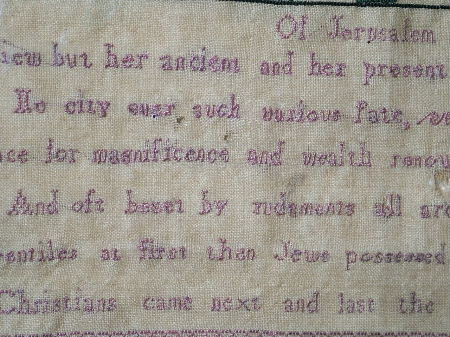 Of Jerusalem
iew but her ancient and her present
No city ever such various Fate, we
ce for magnificence and wealth renou
And oft beset by rudements all aro
entiles at first then Jews possessed
Christians came next and last the